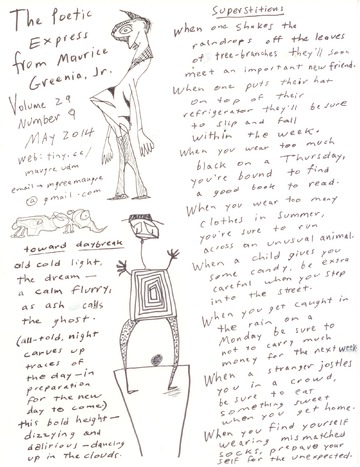 The Poetic
Express
from Maurice
Greenia, Jr.
Volume 29
Number 9
MAY 2014
web: tiny.cc/
maugre_udm
email → mgreemaugre
@gmail.com
toward daybreak
old cold light,
the dream —
a calm flurry,
as ash calls
the ghost.
(all-told, night
carves up
traces of
the day — in
preparation
for the new
day to come)
this bold height —
dizzying and
delirious — dancing
up in the clouds.
Superstitions
When one shakes the
raindrops off the leaves
of tree-branches they'll soon
meet an important new friend.
When one puts their hat
on top of their
refrigerator they'll be sure
to slip and fall
within the week.
When you wear too much
black on a Thursday,
you're bound to find
a good book to read.
When you wear too many
clothes in summer,
you're sure to run
across an unusual animal.
When a child gives you
some candy, be extra
careful when you step
into the street.
When you get caught in
the rain on a
Monday be sure to
not to carry much
money for the next week.
When a stranger jostles
you in a crowd,
be sure to eat
something sweet
when you get home.
When you find yourself
wearing mismatched
socks, prepare your
self for the unexpected.